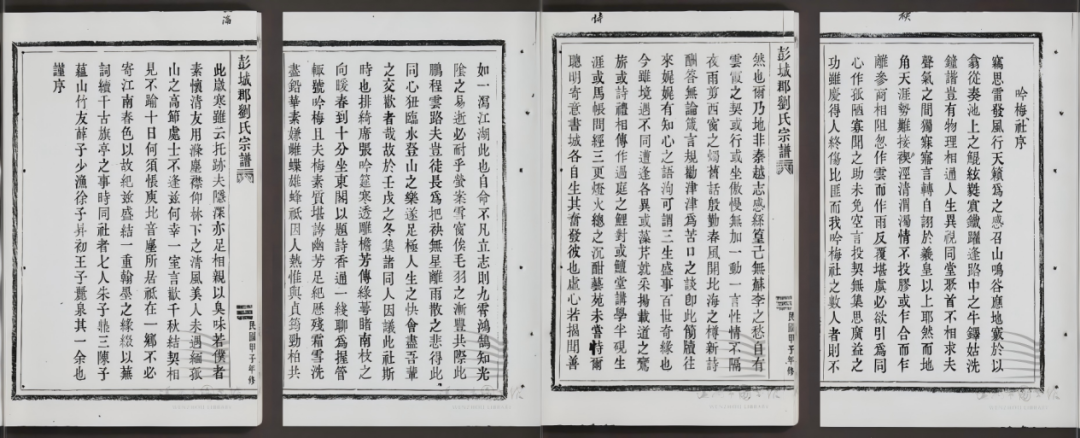 吟梅社序
竊思雷發風行天籟為之感召山鳴谷應地竅於以
翕從奏池上之鯤絃甤賓鐵躍逢路中之牛鐸姑洗
鐘諧豈有物理相通人生異視同堂聚首不相求夫
聲氣之間獨寐寤言轉自詡於羲皇以上耶然而地
角天涯勢難接禊涇清渭濁情不投膠或乍合而乍
離參商相阻忽作雲而作雨反覆堪虞必欲引為同
心作孤陋寡聞之助未免空言投契無集思廣益之
功雖慶得人終傷比匪而我吟梅社之數人者則不
民國甲子年修
彭城郡劉氏宗譜
然也爾乃地非秦越志感絲篁己無蘇李之愁自有
雲霞之契或行或坐傲慢無加一動一言性情不隔
夜雨剪西窗之燭舊話殷勤春風開北海之樽新詩
酬答無論箴言規勸津津為苦口之談即此簡牘往
來娓娓有知心之語洵可謂三生盛事百世奇緣也
今雖境遇不同遭逢各異或藻芹就采揚載道之鸞
旂或詩禮相傳作過庭之鯉對或鱣堂講學半硯生
涯或馬帳問經三更燈火總之沉酣藝苑未嘗恃爾
聰明寄意書城各自生其奮發彼也虛心若揭聞善
如一瀉江湖此也自命不凡立志則九霄鴻鵠知光
陰之易逝必耐乎螢案雪窗俟毛羽之漸豐共際此
鵬程雲路夫豈徒長為把袂無星離雨散之悲得此
同心狃狂臨水登山之樂遂足極人生之快會盡吾輩
之交歡者哉故於壬戌之冬集諸同人因議此社斯
時也排綺席張吟筵寒透雕檐芳傳綠萼睹南枝之
向暖春到十分坐東閣以題詩香通一綫聊為握管
輒號吟梅且夫梅素質堪誇幽芳足紀歷殘霜雪洗
盡鉛華素嫌雌蝶雄蜂祇因人熱惟與貞筠勁柏共
民國甲子年修
彭城郡劉氏宗譜
此歲寒雖云托跡夫隱深亦足相親以臭味若僕者
素懷清友用滌塵襟仰林下之清風美人未遇緬孤
山之高節處士不逢茲何幸一室言歡千秋結契相
見不踰十日何須悵庾比音塵所居祇在一鄉不必
寄江南春色以故紀茲盛結一重翰墨之緣綴以蕪
詞續千古旗亭之事時同社者七人朱子聽三陳子
蘊山竹友薛子少漁徐子昇初王子麗泉其一余也
謹序